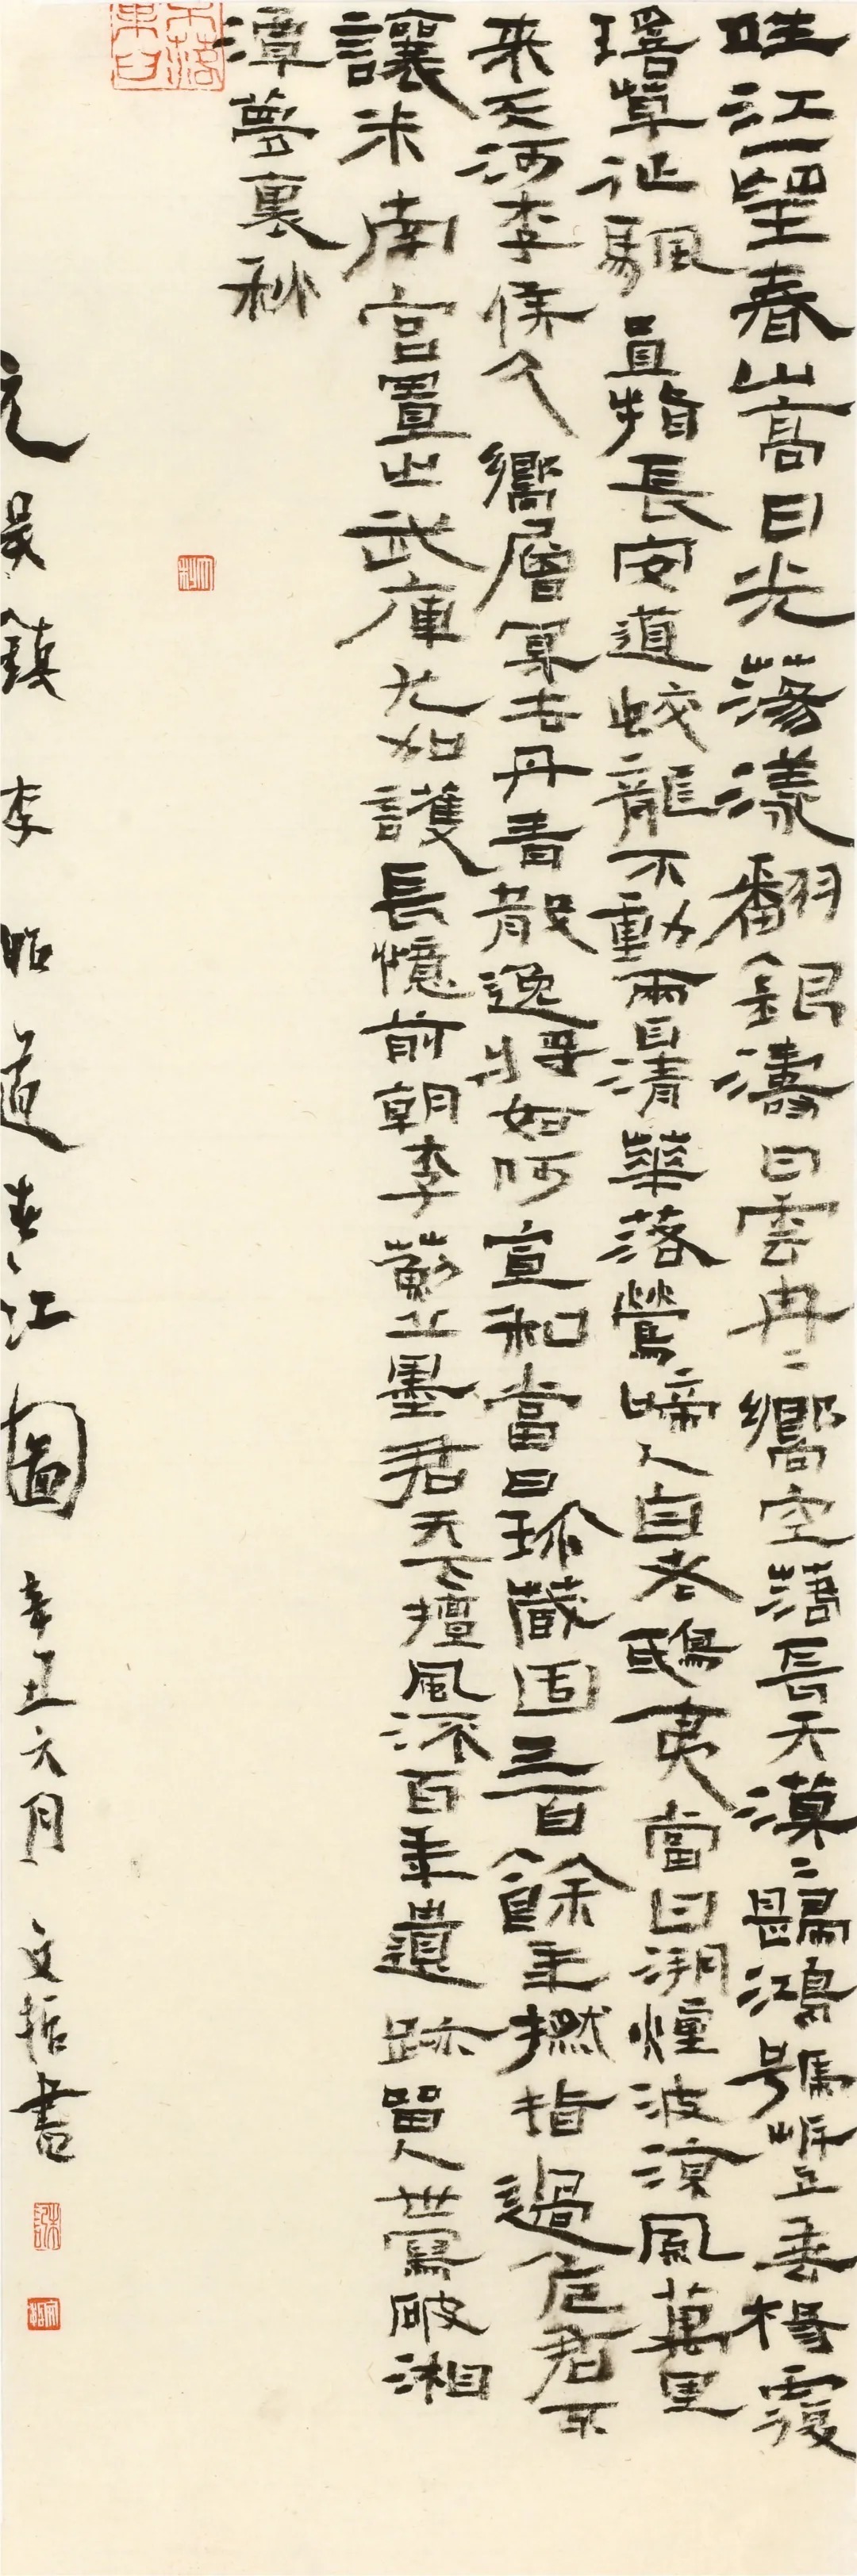 江一望春山高日光蕩漾翻銀濤白雲冉〻嚮空落長天漠〻歸鴻號岸上垂楊覆
瑤草征颿直指長安道蛟龍不動雨自清華落鶯啼人自老鴟夷當日溯煙波涼風萬里
来天河李侯久嚮層冥去丹青散逸將如何宣和當日珍藏固三百餘年撚指過危君不
讓米南宮置之武庫尤加護長憶前朝李薊丘墨君天下擅風流百年遺跡留人世寫破湘
潭夢裏秋
元吳鎮李昭道春江圖辛丑六月文哲書